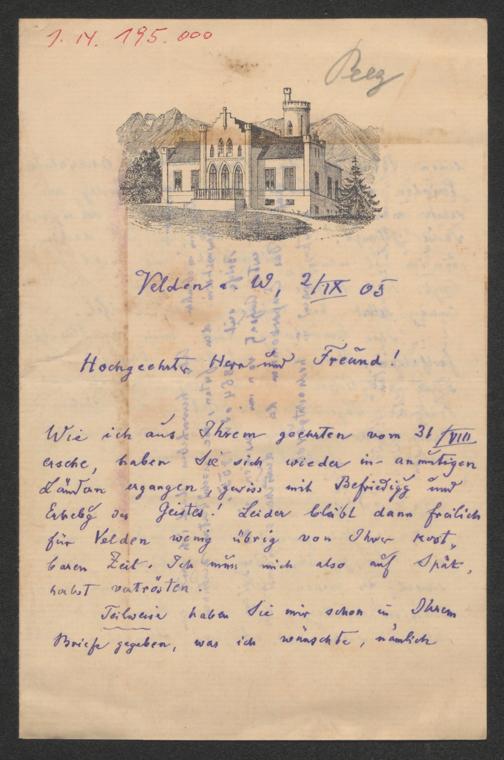 J. N. 195.000
Velden a. W. 2/IX 05
Hochgeehrter Herr und Freund!
Wie ich aus Ihrem geehrten vom 31/VIII
ersehe, haben Sie sich wieder in anmutigen
Ländern ergangen gewiss mit Befriedigg und
Erhebg des Geistes! Leider bleibt dann freilich
für Velden wenig übrig von Ihrer kost„
baren Zeit. Ich muss mich also auf Spät„
herbst vertrösten.
Teilweise haben Sie mir schon in Ihrem
Briefe gegeben, was ich wünschte, nämlich